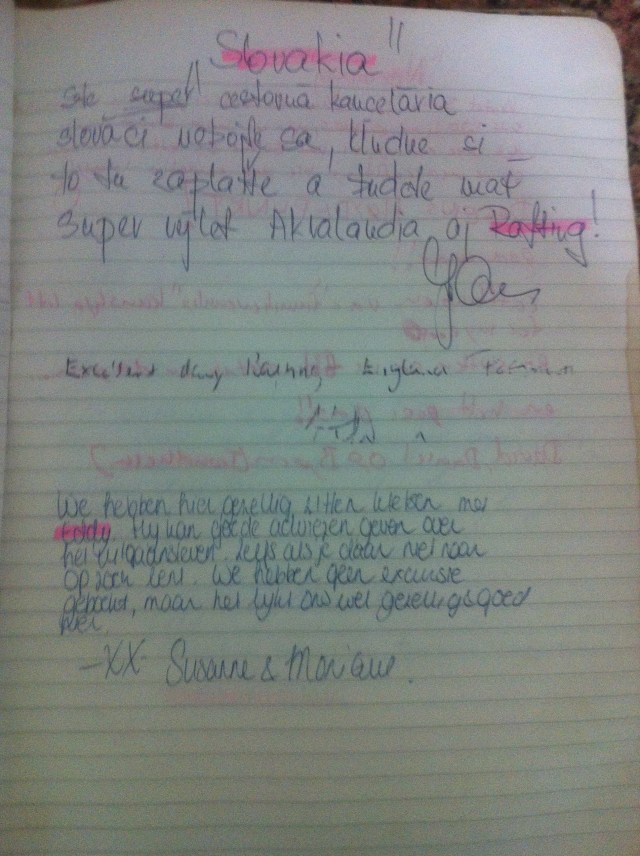 "Slovakia"
ste super cestovná kancelária
slováci nebojte sa, kludne si
to tu zaplaťte a budete mať
super výlet Akvalandia aj Rafting!
Excellent day Rafting, England
We hebben hier gezellig zitten kletsen met
Hij kan goede adviezen geven over
het uitgaansleven. Zelfs als je daar niet naar
op zoek bent. We hebben geen excursie
geboekt, maar het lijkt ons wel gezellig & goed
hier.
-XX- Susanne & Monique.